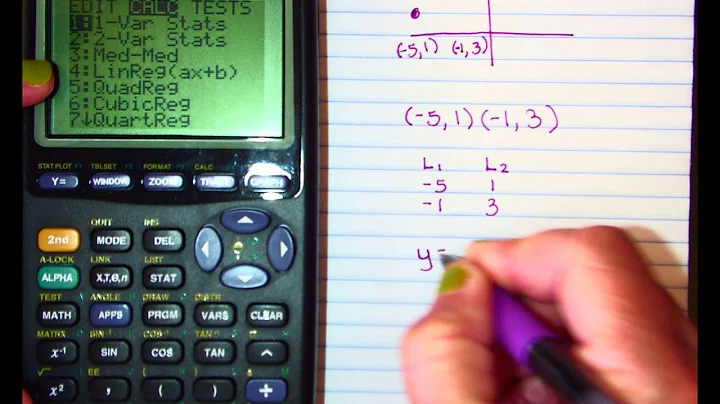 EDIT CALC TESTS
1:1-Var Stats
2:2-Var Stats
3:Med-Med
4:LinReg(ax+b)
5:QuadReg
6:CubicReg
7↓QuartReg
STAT PLOT F1 TBLSET F2 FORMAT F3 CALC
Y= WINDOW ZOOM TRACE GRAPH
QUIT INS
2nd MODE DEL
A-LOCK LINK LIST
ALPHA X,T,θ,n STAT
TEST ANGLE DRAW DISTR
MATH APPS PRGM VARS CLEAR
MATRX SIN⁻¹ COS⁻¹ TAN⁻¹ π
x⁻¹ SIN COS TAN ^
√ EE
x² , ( ) ÷
(-5,1) (-1,3)
(-5,1)(-1,3)
L₁ L₂
-5 1
-1 3
y=